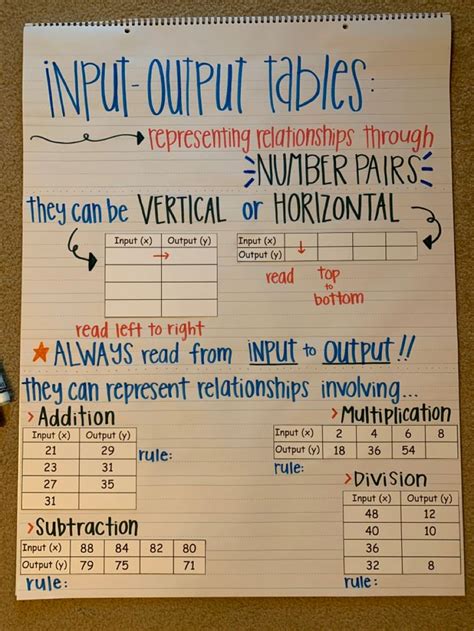 input-output tables:
representing relationships through
NUMBER PAIRS
They can be VERTICAL or HORIZONTAL
Input (x) Output (y)
Input (x)
Output (y)
read top
to
bottom
read left to right
ALWAYS read from input to output!!
They can represent relationships involving...
>Addition
Input (x) Output (y)
21 29
23 31
27 35
31
rule:
>Multiplication
Input (x) 2 4 6 8
Output (y) 18 36 54
rule:
>Subtraction
Input (x) 88 84 82 80
Output (y) 79 75 71
rule:
>Division
Input (x) Output (y)
48 12
40 10
36
32 8
rule: